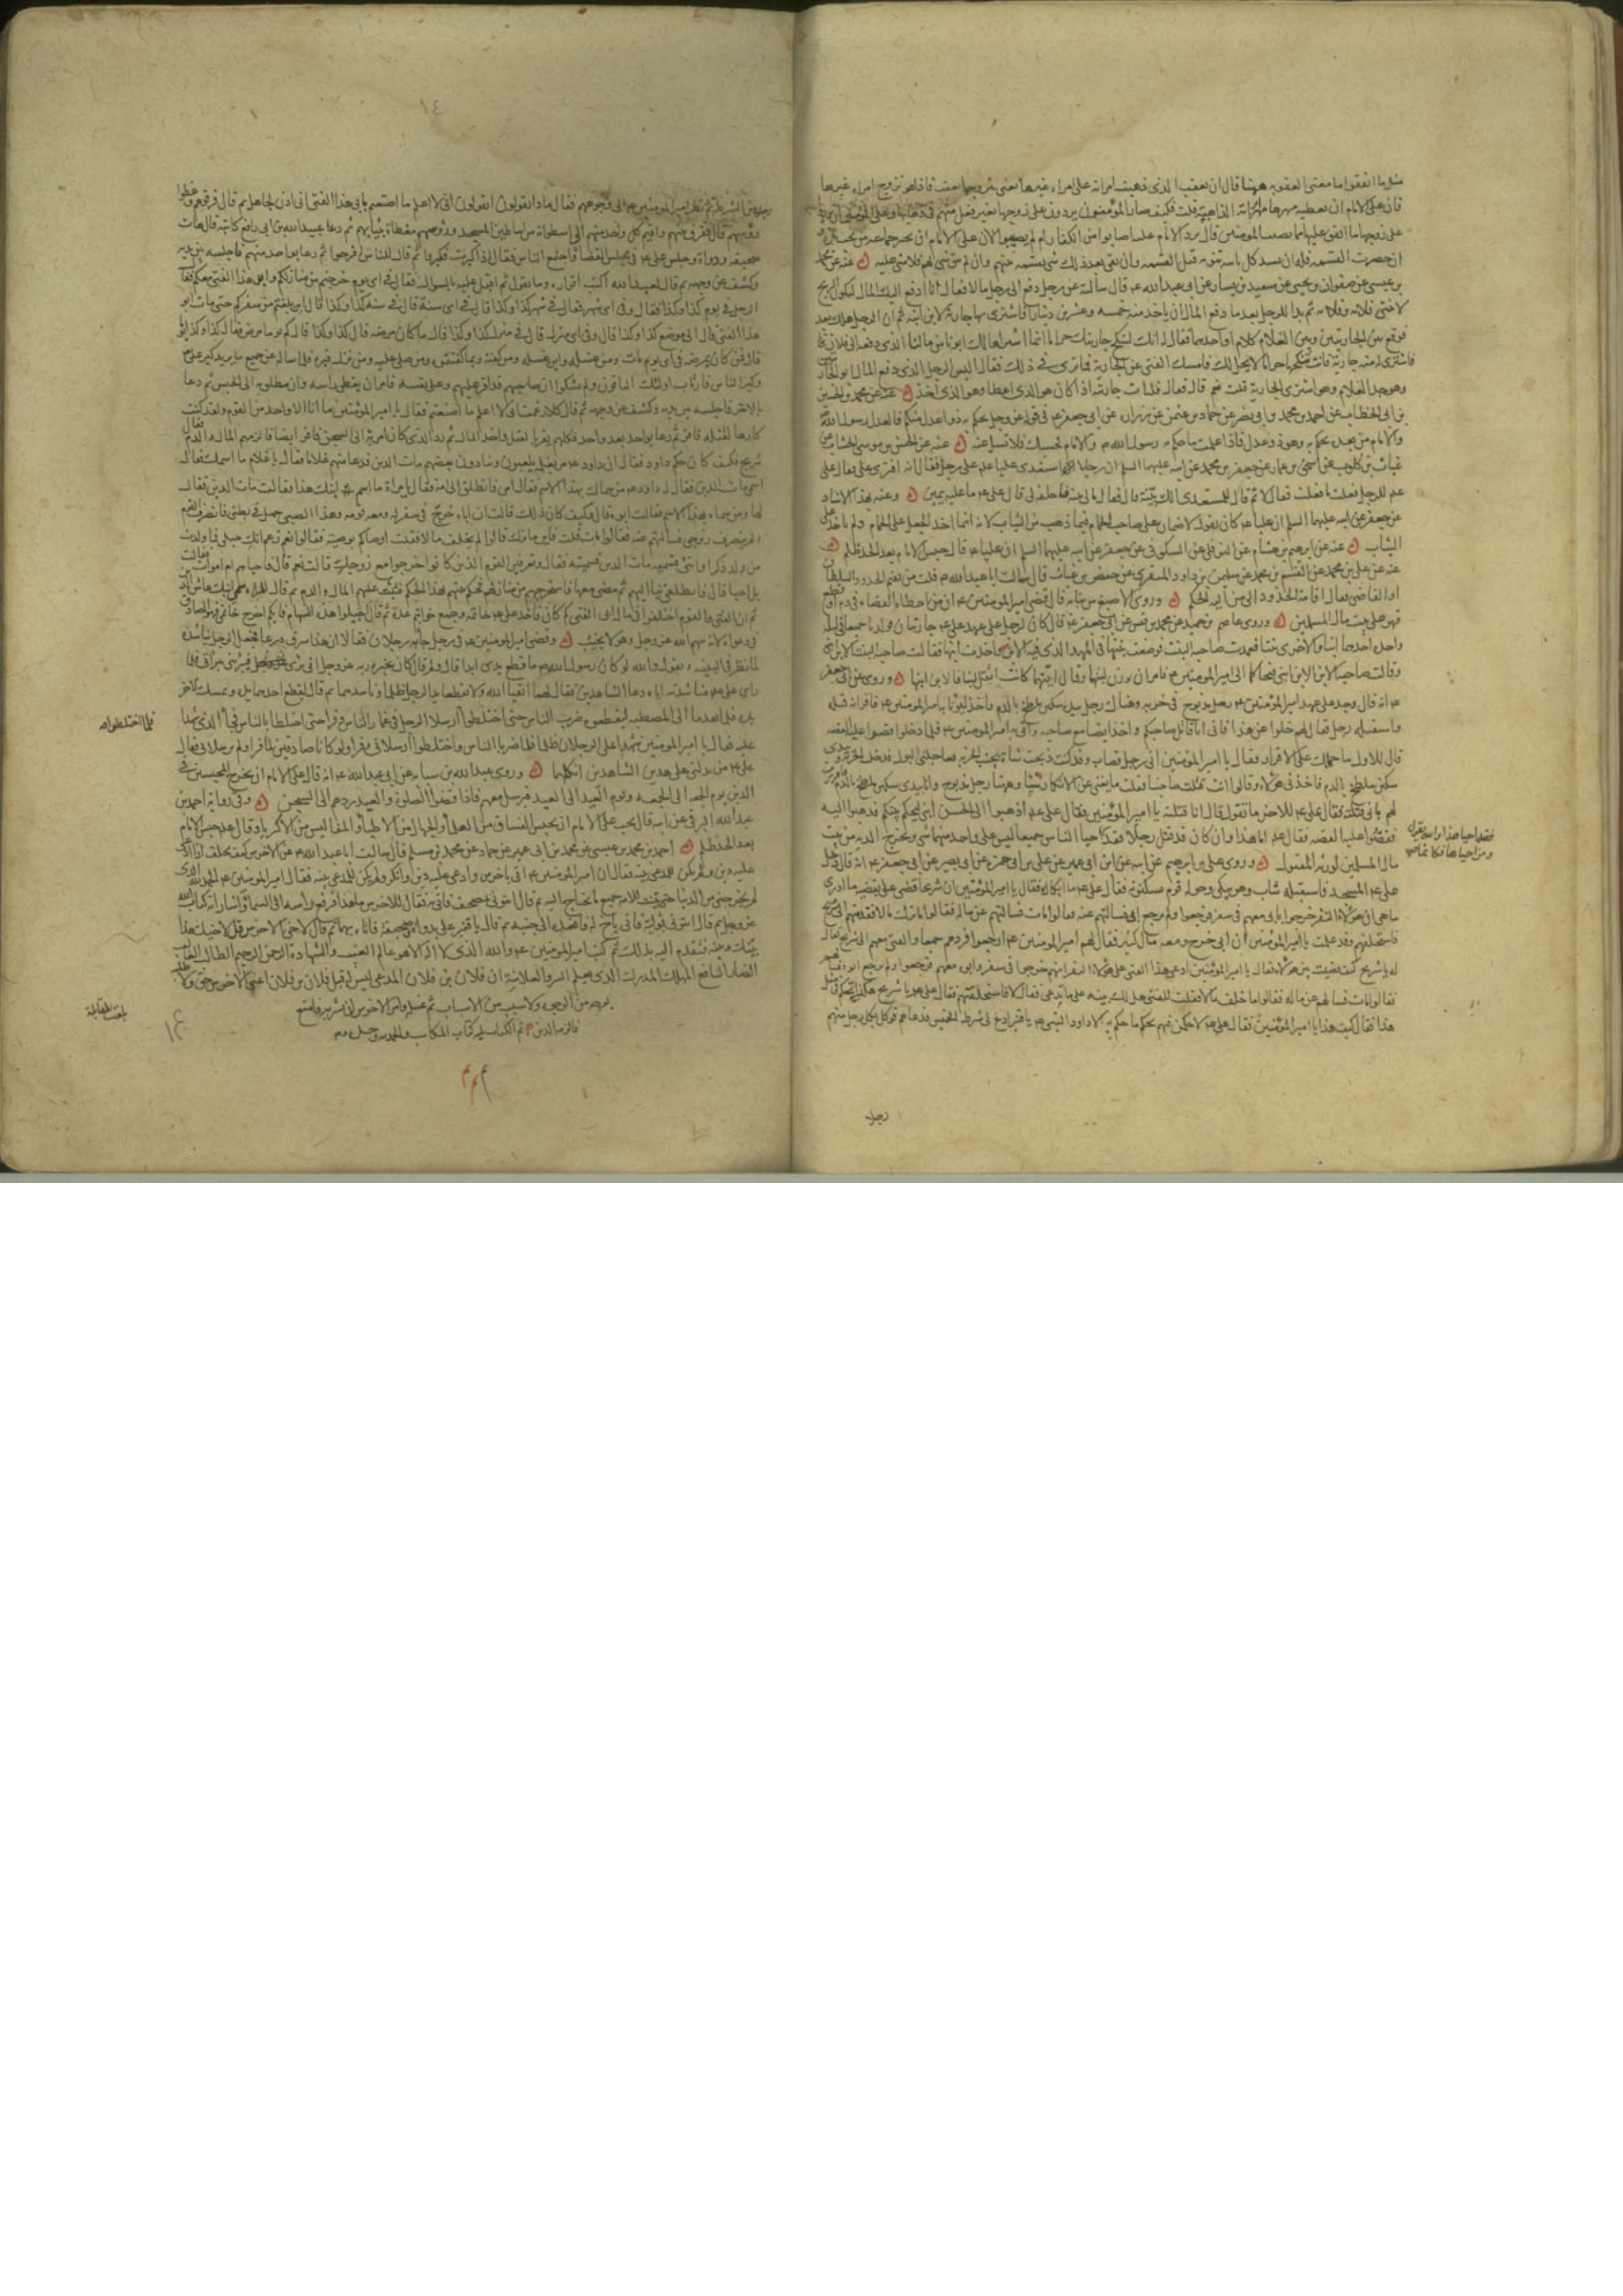 مثل ما انفقوا ما معنى العقوبة ههنا قال ان يعقب الذى ذهبت امراته على امراة غيرها يعنى تزوجها بعقب فاذا هو تزوج امراة غيرها
فان على الامام ان يعطيه مهرها مهر امراته الذاهبة قلت فكيف صار المؤمنون يردون على زوجها بغير فعل منهم فى ذهابها وعلى المؤمنين ان يردوا
على زوجها ما انفق عليها مما يصيب المؤمنين قال يرد الامام عليه اصابوا من الكفار ام لم يصيبوا لان على الامام ان يجبر جماعة من تحت يده
ان حضرت القسمة فله ان يسد كل نائبة تنوبه قبل القسمة وان بقى بعد ذلك شى يقسمه بينهم وان لم يبق شى لهم فلا شى عليه عنه عن محمد
بن عيسى عن صفوان بن يحيى عن سعيد بن يسار عن ابى عبدالله ع قال سالته عن رجل دفع الى رجل مالا فقال انما ادفع اليك المال ليكون الربح
وهو جد الغلام وهو اشترى له الجارية قلت نعم قال فقال فلتات جاريته اذا كان هو الذى اعطا وهو الذى اخذ عنه عن محمد بن الحسين
والامام من بعده يحكم به وهو ذو عدل فاذا علمت ما حكم به رسول الله ص والامام فحسبك فلا تسل عنه عنه عن الحسن بن موسى الخشاب عن
غياث بن كلوب عن اسحق بن عمار عن جعفر بن محمد عن ابيه عليهما السلم ان رجلا استعدى عليا ع على رجل فقال انه افترى على فقال على
ع للرجل فعلت ما فعلت فقال لا ثم قال للمستعدى الك بينة قال فقال مالى بينة فاحلفه لى قال على ع ما عليه يمين وعنه بهذا الاسناد
عن جعفر عن ابيه عليهما السلم ان عليا ع كان يقول لا ضمان على صاحب الحمام فيما ذهب من الثياب لانه انما اخذ الجعل على الحمام ولم ياخذ على
الثياب عنه عن ابرهيم بن هشام عن النوفلى عن السكونى عن جعفر عن ابيه عليهما السلم ان عليا ع قال حبس الامام بعد الحد ظلم
عنه عن على بن محمد عن القسم بن محمد عن سليمن بن داود المنقرى عن حفص بن غياث قال سالت ابا عبدالله ع قلت من يقيم الحدود السلطان
او القاضى فقال اقامة الحدود الى من اليه الحكم وروى الاصبغ بن نباته قال قضى امير المؤمنين ع ان ما اخطات القضاة فى دم او قطع
فهو على بيت مال المسلمين وروى عاصم بن حميد عن محمد بن قيس عن ابى جعفر ع قال كان لرجل على عهد على ع جاريتان فولدتا جميعا فى ليلة
واحدة احديهما ابنا والاخرى بنتا فعمدت صاحبة البنت فوضعت بنتها فى المهد الذى فيه الابن واخذت ابنها فقالت صاحبة البنت الابن ابنى
وقالت صاحبة الابن الابن ابنى فتحاكما الى امير المؤمنين ع فامر ان يوزن لبنها وقال ايتهما كانت اثقل لبنا فالابن لها وروى عن ابى جعفر
ع انه قال وجد على عهد امير المؤمنين ع رجل مذبوح فى خربة وهناك رجل بيده سكين ملطخ بالدم فاخذ ليؤتى به امير المؤمنين ع فاقر انه قتله
واستقبله رجل فقال لهم خلوا عن هذا فانى انا قاتل صاحبكم واخذ ايضا مع صاحبه واتى به امير المؤمنين ع فلما دخلوا قصوا عليه القصة
قال للاول ما حملك على الاقرار فقال يا امير المؤمنين انى رجل قصاب وقد كنت ذبحت شاة بجنب الخربة فعاجلنى البول فدخلت الخربة وبيدى
لهم بانى قتلته فقال على ع للاخر ما تقول قال انا قتلته يا امير المؤمنين فقال على ع اذهبوا الى الحسن ابنى ليحكم بينكم فذهبوا اليه
فقصوا عليه القصة فقال ع اما هذا وان كان قد قتل رجلا فقد احيا الناس جميعا ليس على واحد منهما شى وتخرج الدية من بيت
فقد احيا هذا والله يقول
ومن احياها فكانما
مال المسلمين لورثة المقتول وروى على بن ابرهيم عن ابيه عن ابن ابى عمير عن على بن ابى حمزة عن ابى بصير عن ابى جعفر ع انه قال دخل
على ع المسجد فاستقبله شاب وهو يبكى وحوله قوم يسكتونه فقال على ع ما ابكاك فقال يا امير المؤمنين ان شريحا قضى على بقضية ما ادرى
ما هى ان هؤلاء النفر خرجوا بابى معهم فى سفر فرجعوا ولم يرجع ابى فسالتهم عنه فقالوا مات فسالتهم عن ماله فقالوا ما ترك مالا فقدمتهم الى شريح
فاستحلفهم وقد علمت يا امير المؤمنين ان ابى خرج ومعه مال كثير فقال لهم امير المؤمنين ع ارجعوا فردهم جميعا والفتى معهم الى شريح فقال
له يا شريح كيف قضيت بين هؤلاء فقال يا امير المؤمنين ادعى هذا الفتى على هؤلاء النفر انهم خرجوا فى سفر وابوه معهم فرجعوا ولم يرجع ابوه
فقالوا مات فسالتهم عن ماله فقالوا ما خلف مالا فقلت للفتى هل لك بينة على ما تدعى فقال لا فاستحلفتهم فقال على ع يا شريح هكذا تحكم فى مثل
هذا فقال كيف هذا يا امير المؤمنين فقال على ع لاحكمن فيهم بحكم ما حكم به الا داود النبى ع يا قنبر ادع لى شرطة الخميس فدعاهم فوكل بكل رجل منهم
رجلا
١٤
رجلا من الشرطة ثم نظر امير المؤمنين ع الى وجوههم فقال ماذا تقولون اتقولون انى لا اعلم ما صنعتم بابى هذا الفتى انى اذن لجاهل ثم قال فرقوهم وغطوا
رؤسهم قال ففرق بينهم واقيم كل واحد منهم الى اسطوانة من اساطين المسجد ورؤسهم مغطاة بثيابهم ثم دعا عبيدالله بن ابى رافع كاتبه فقال هات
صحيفة ودواة وجلس على ع فى مجلس القضا واجتمع الناس فقال اذا كبرت فكبروا ثم قال للناس افرجوا ثم دعا بواحد منهم فاجلسه بين يديه
وكشف عن وجهه ثم قال لعبيدالله اكتب اقراره وما يقول ثم اقبل عليه بالسؤال فقال فى اى يوم خرجتم من منازلكم وابو هذا الفتى معكم فقال
الرجل فى يوم كذا وكذا فقال وفى اى شهر فقال فى شهر كذا وكذا قال فى اى سنة قال فى سنة كذا وكذا قال الى اين بلغتم من سفركم حتى مات ابو
هذا الفتى قال الى موضع كذا وكذا قال وفى اى منزل قال فى منزل كذا وكذا قال ما كان مرضه قال كذا وكذا قال كم يوما مرض فقال كذا وكذا يوما
قال فمن كان يمرضه فى اى يوم مات ومن غسله واين غسله ومن كفنه وبما كفنتموه ومن صلى عليه ومن نزل قبره فلما ساله عن جميع ما يريد كبر على ع
وكبر الناس فارتاب اولئك الباقون ولم يشكوا ان صاحبهم قد اقر عليهم وعلى نفسه فامر ان يغطى راسه وان ينطلق به الى الحبس ثم دعا
بالاخر فاجلسه بين يديه وكشف عن وجهه ثم قال كلا زعمت انى لا اعلم ما صنعتم فقال يا امير المؤمنين ما انا الا واحد من القوم ولقد كنت
كارها لقتله فاقر ثم دعا بواحد بعد واحد فكلهم يقر بالقتل واخذ المال ثم رد الذى كان امر به الى السجن فاقر ايضا فالزمهم المال والدم فقال
شريح فكيف كان حكم داود فقال ان داود ع مر بغلمة يلعبون وينادون بعضهم مات الدين فدعا منهم غلاما فقال يا غلام ما اسمك فقال
اسمى مات الدين فقال له داود ع من سماك بهذا الاسم فقال امى فانطلق الى امه فقال يا امراة ما اسم ابنك هذا فقالت مات الدين فقال
لها ومن سماه بهذا الاسم فقالت ابوه قال وكيف كان ذلك قالت ان اباه خرج فى سفر له ومعه قومه وهذا الصبى حمل فى بطنى فانصرف القوم
ولم ينصرف زوجى فسالتهم عنه فقالوا مات قلت فاين ماترك قالوا لم يخلف مالا فقلت اوصاكم بوصية فقالوا نعم زعم انك حبلى فما ولدت
من ولد ذكرا او انثى فسميه مات الدين فسميته فقال وتعرفين القوم الذين كانوا خرجوا مع زوجك قالت نعم قال فاحياهم ام اموات فقالت
بل احيا قال فانطلقى بنا اليهم ثم مضى معها فاستخرجهم من منازلهم فحكم بينهم بهذا الحكم فثبت عليهم المال والدم ثم قال للمراة سمى ابنك عاش الدين
ثم ان الفتى والقوم اختلفوا فى مال ابى الفتى كم كان فاخذ على ع خاتمه وجمع خواتيم عدة ثم قال اجيلوا هذه السهام فايكم اخرج خاتمى فهو الصادق
فى دعواه لانه سهم الله عز وجل وهو لا يخيب وقضى امير المؤمنين ع فى رجل جاء به رجلان فقالا ان هذا سرق درعا فجعل الرجل يناشده
لما نظر فى البينة ويقول والله لو كان رسول الله ص ما قطع يدى ابدا قال ولم قال كان يخبره ربه عز وجل انى برى فيبرئنى ببراتى فلما
راى على ع مناشدته اياه دعا الشاهدين فقال لهما اتقيا الله ولا تقطعا يد الرجل ظلما وناشدهما ثم قال ليقطع احدكما يده ويمسك الاخر
يده فلما تقدما الى المصطبة ليقطعوه ضرب الناس حتى اختلطوا ارسلا الرجل فى غمار الناس وفرا حتى اختلطا بالناس فجا الذى شهدا
فلما اختلطوا
عليه فقال يا امير المؤمنين شهد على الرجلان ظلما فلما ضربا الناس واختلطوا ارسلانى وفرا ولو كانا صادقين لما فرا ولم يرسلانى فقال
على ع من يدلنى على هذين الشاهدين انكلهما وروى عبدالله بن سيابة عن ابى عبدالله ع انه قال على الامام ان يخرج المحبسين فى
الدين يوم الجمعة الى الجمعة ويوم العيد الى العيد فيرسل معهم فاذا قضوا الصلوة والعيد ردهم الى السجن وفى رواية احمد بن
عبدالله البرقى عن ابيه قال يجب على الامام ان يحبس الفساق من العلما والجهال من الاطبا والمفاليس من الاكريا وقال ع حبس الامام
بعد الحد ظلم احمد بن محمد بن عيسى عن محمد بن ابى عمير عن حماد عن محمد بن مسلم قال سالت ابا عبدالله ع عن الاخرس كيف يحلف اذا ادعى
عليه دين ولم يكن للمدعى بينة فقال ان امير المؤمنين ع اتى باخرس وادعى عليه دين وانكر ولم يكن للمدعى بينة فقال امير المؤمنين ع الحمد لله الذى
لم يخرجنى من الدنيا حتى بينت للامة جميع ما تحتاج اليه ثم قال ائتونى بمصحف فاتى به فقال للاخرس ما هذا فرفع راسه الى السما واشار انه كتاب الله
عز وجل ثم قال ائتونى بوليه فاتى باخ له فاقعده الى جنبه ثم قال يا قنبر على بدواة وصحيفة فاتاه بهما ثم قال لاخى الاخرس قل لاخيك هذا
بينك وبينه فتقدم اليه بذلك ثم كتب امير المؤمنين ع والله الذى لا اله الا هو عالم الغيب والشهادة الرحمن الرحيم الطالب الغالب
الضار النافع المهلك المدرك الذى يعلم السر والعلانية ان فلان بن فلان المدعى ليس له قبل فلان بن فلان اعنى الاخرس حق ولا طلبة
بوجه من الوجوه ولا سبب من الاسباب ثم غسله وامر الاخرس ان يشربه فامتنع
فالزمه الدين تم الكتاب يليه كتاب المكاسب والحمد لله وحده
بلغت المقابلة
١٤
م م م